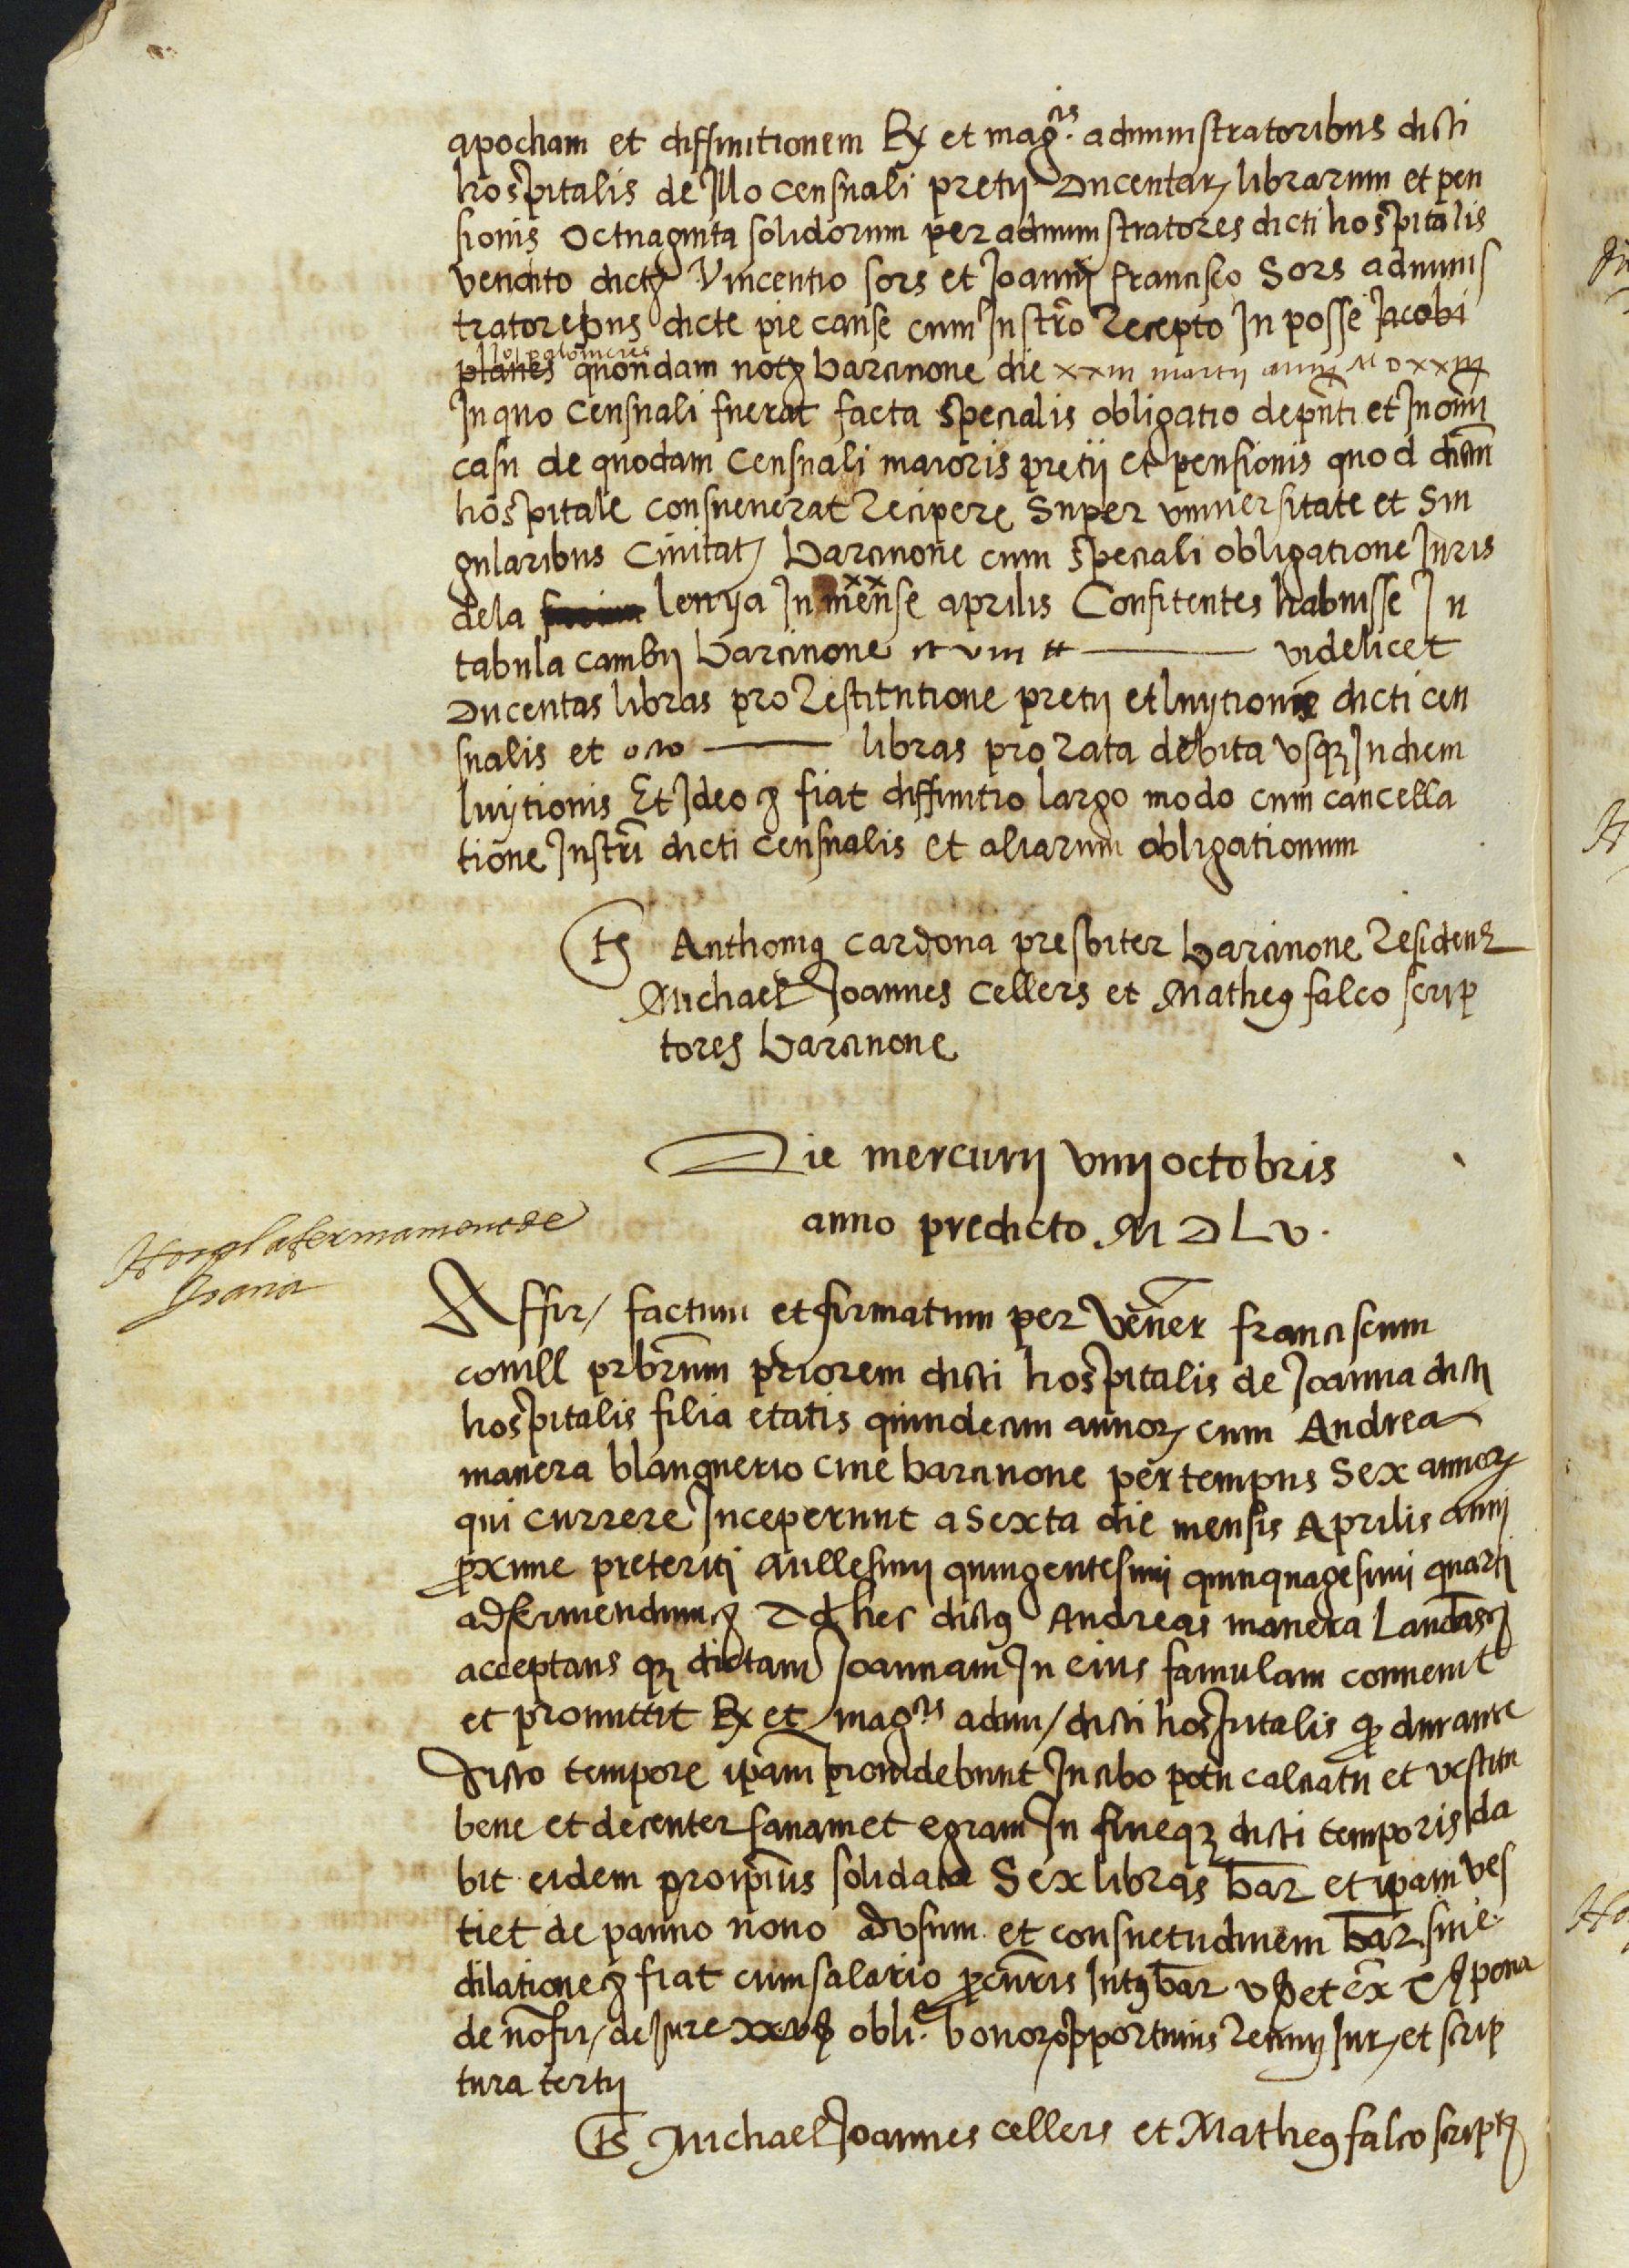 apocham et diffinitionem Rx et mag.cis administratoribus dicti
hospitalis de Illo censuali pretij Ducentar librarum et pen
sionis octuaginta solidorum per administratores dicti hospitalis
vendito dictis Vincentio sors et Joanni francisco Sors adminis
tratoribus dicte pie cause cum Instro recepto In posse Jacobi
planes quondam notr barcinone die xxiii martij anni MDxxiii
palomeres
In quo censuali fuerat facta specialis obligatio de pnti et In omni
casu de quodam censuali maioris pretij et pensionis quod dictum
hospitale consueuerat recipere super vniuersitate et sin
gularibus Ciuitatis barcinone cum speciali obligatione Juris
dela lenya In mense aprilis Confitentes habuisse In
tabula cambij barcinone videlicet
Ducentas libras pro restitutione pretij et luytionis dicti cen
sualis et octo libras pro rata debita vsq In diem
luytionis Et Ideo fiat diffinitio largo modo cum cancella
tione Instri dicti censualis et aliarum obligationum
ts Anthonius cardona presbiter barcinone residens
Michael Joannes cellers et Matheus falco scrip
tores barcinone
Die mercurij viiij octobris
anno predicto MDLv.
afermament de
Joana
Affir/ factum et firmatum per vener franciscum
conill prbrum priorem dicti hospitalis de Joanna dicti
hospitalis filia etatis quindecim annor cum Andrea
manera blanquerio ciue barcinone per tempus sex annor
qui currere Inceperunt a sexta die mensis Aprilis anni
proxime preteriti millesimi quingentesimi quinquagesimi quarti
ad seruiendum Ad hec dictus Andreas manera Laudans
acceptans q dictam Joannam In eius famulam conuenit
et promittit Rx et mag.cis admi/ dicti hospitalis q durante
dicto tempore ipam prouidebunt In cibo potu calciatu et vestitu
bene et decenter sanam et egram In fineq dicti temporis da
bit eidem pro ipius solidata Sex libras bar et ipam ves
tiet de panno nouo ad vsum et consuetudinem bar sine
dilatione fiat cum salario procuris Intus bar v et ex pena
de no fir/ de Jure obli.e bonor opportunis renuny Jur et scrip
tura tertij
ts Michael Joannes cellers et Matheus falco script